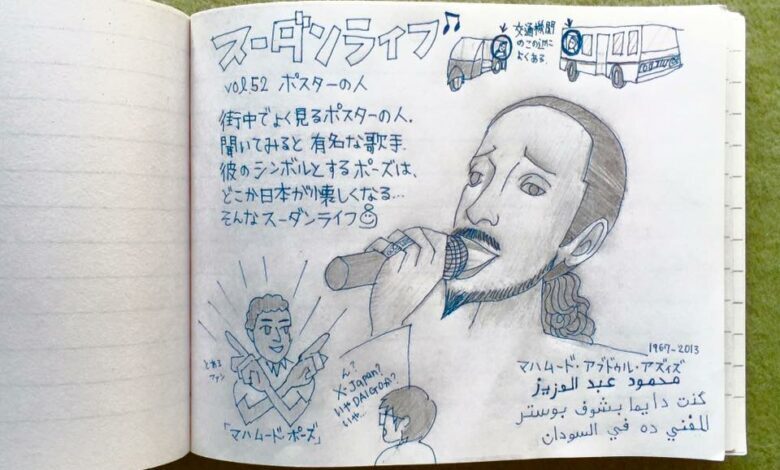 スーダンライフ♪
vol.52 ポスターの人
街中でよく見るポスターの人.
聞いてみると有名な歌手.
彼のシンボルとするポーズは、
どこか日本が懐しくなる…
そんなスーダンライフ
交通機関
のこの辺に
よくある.
とある
ファン
「マハムード・ポーズ」
ん?
X-Japan?
いやDAIGOか?
いや…
1967-2013
マハムード・アブドゥル・アズィズ
محمود عبد العزيز
كنت دايما بشوف بوستر
للمُغني ده في السودان